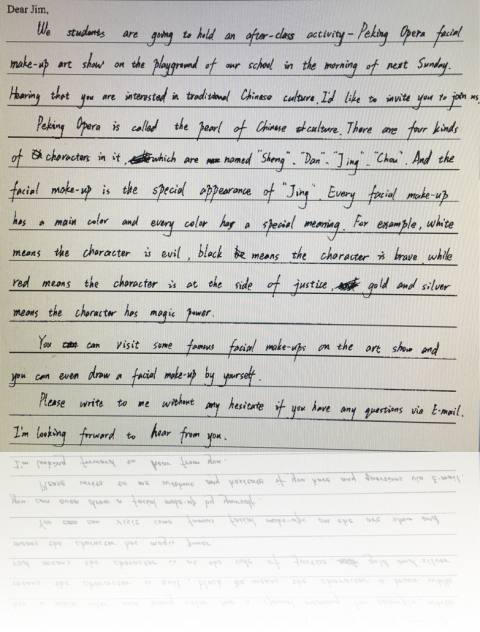 Dear Jim,
We students are going to hold an after-class activity - Peking Opera facial
make-up art show on the playground of our school in the morning of next Sunday.
Hearing that you are interested in traditional Chinese culture, I'd like to invite you to join us.
Peking Opera is called the pearl of Chinese culture. There are four kinds
of characters in it, which are named "Sheng". "Dan". "Jing". "Chou". And the
facial make-up is the special appearance of "Jing". Every facial make-up
has a main color and every color has a special meaning. For example, white
means the character is evil, black means the character is brave, while
red means the character is at the side of justice, gold and silver
means the character has magic power.
You can visit some famous facial make-ups on the art show and
you can even draw a facial make-up by yourself.
Please write to me without any hesitate if you have any questions via E-mail.
I'm looking forward to hear from you.